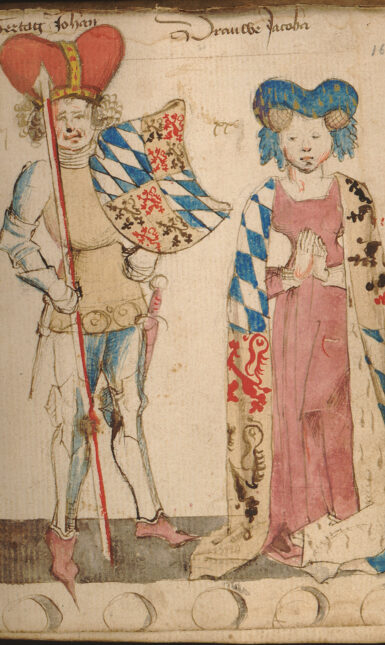 hertog Johan
vrauwe Jacoba